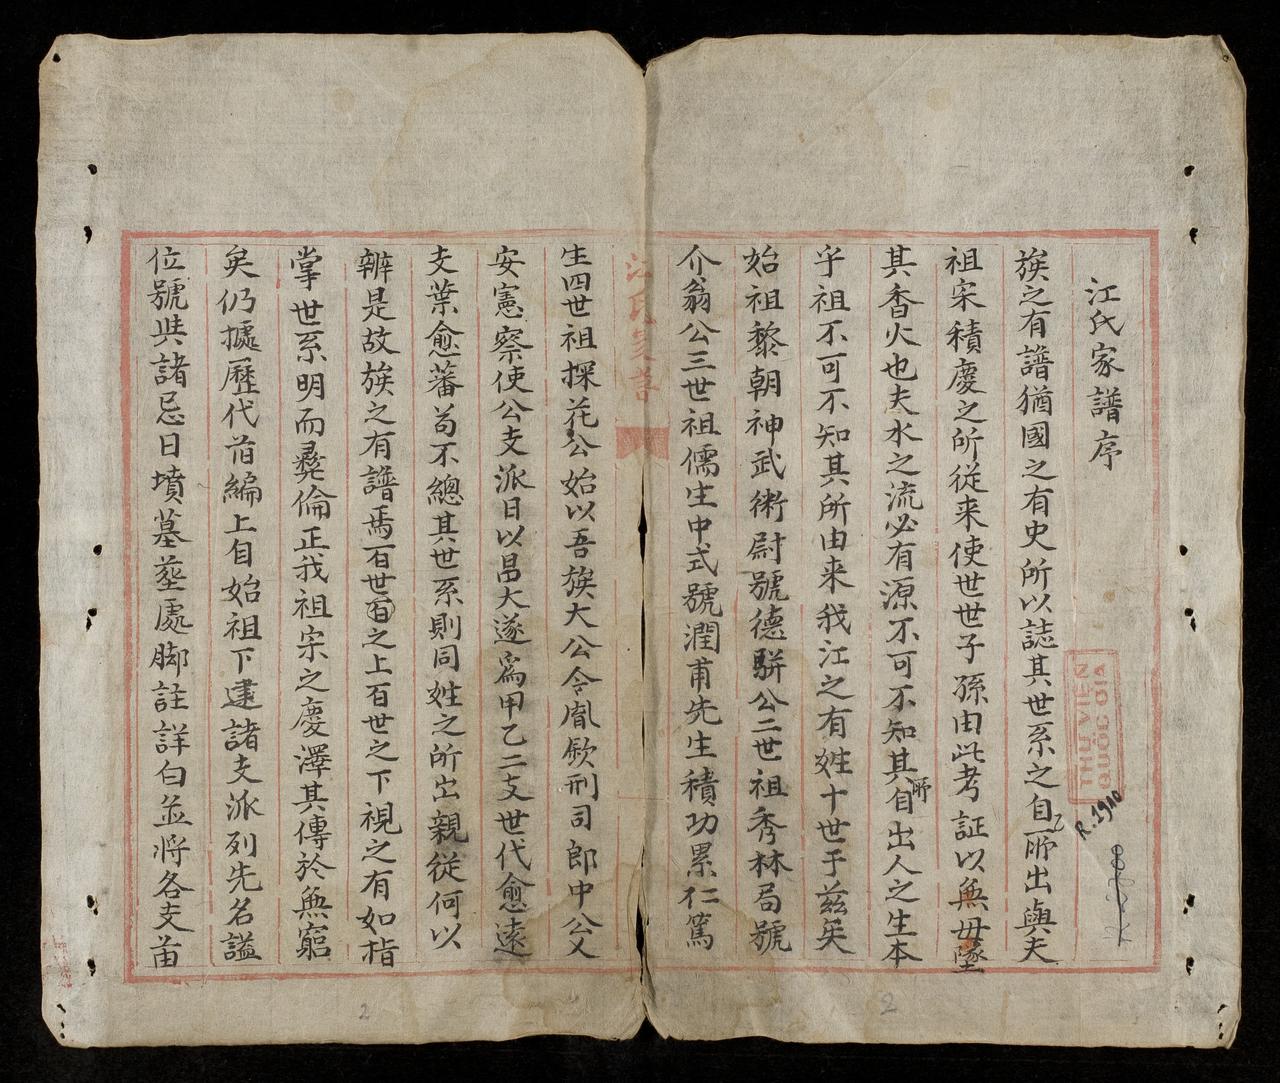 江氏家譜序
族之有譜猶國之有史所以誌其世系之自所出與夫
祖宗積慶之所從来使世世子孫由此考証以無毋墜
其香火也夫水之流必有源不可不知其所自出人之生本
乎祖不可不知其所由来我江之有姓十世于茲矣
始祖黎朝神武術尉號德駢公二世祖秀林局號
介翁公三世祖儒生中式號潤甫先生積功累仁篤
江氏家譜
生四世祖探花公始以吾族大公令胤歃刑司郎中公乂
安憲察使公支派日以昌大遂爲甲乙二支世代愈遠
支葉愈蕃苟不總其世系則同姓之所出親從何以
辨是故族之有譜焉百世百之上百世之下視之有如指
掌世系明而彝倫正我祖宗之慶澤其傳於無窮
矣仍據歷代舊編上自始祖下逮諸支派列先名謚
位號與諸忌日墳墓塟處脚註詳白並將各支苗
THƯ VIỆN
QUỐC GIA
R.1910
2
2